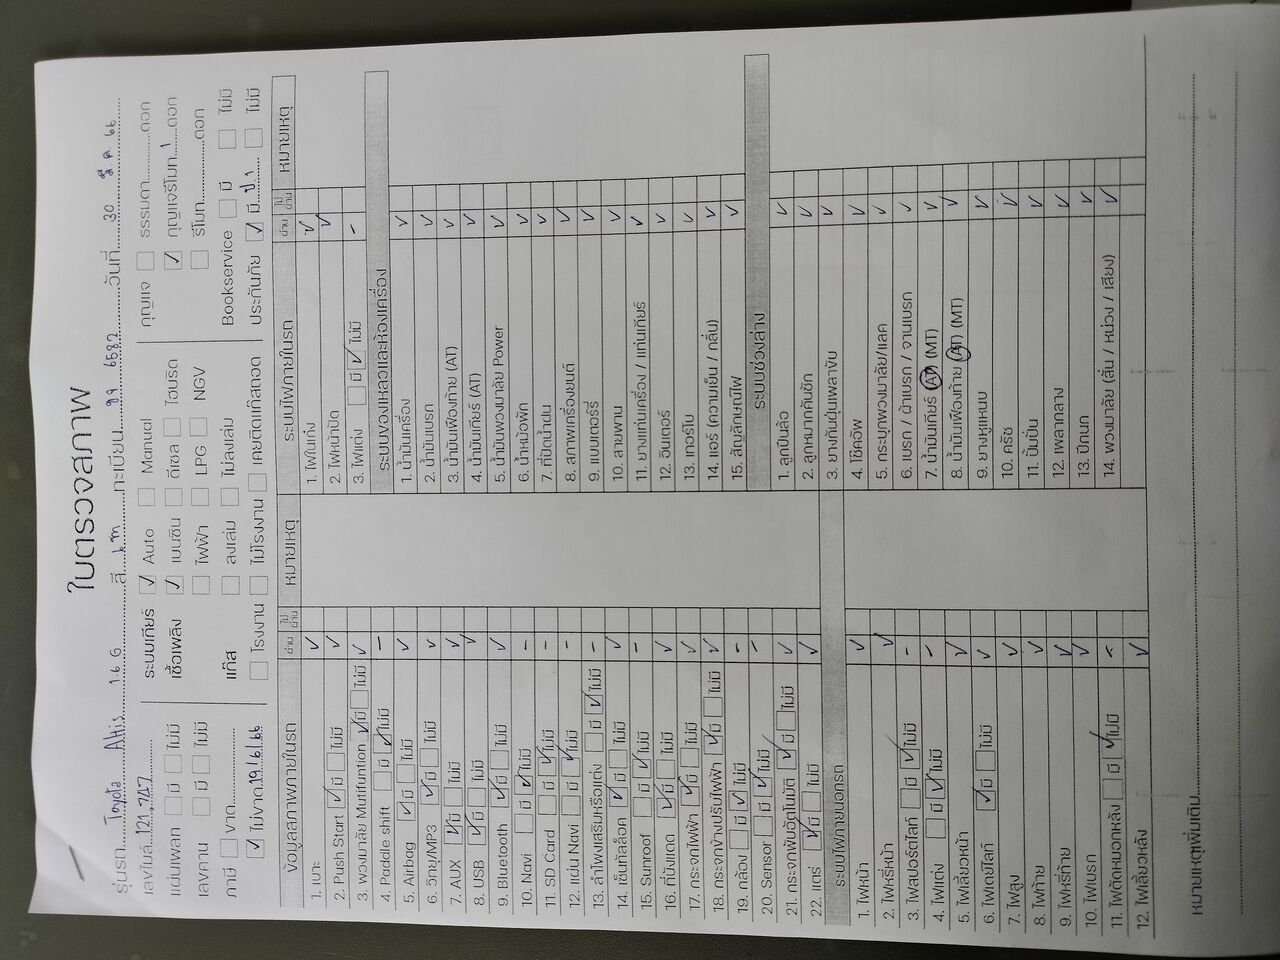 ใบตรวจสภาพ
รุ่นรถ Toyota Altis 1.6 G สี ทะเบียน 6582 วันที่ 30 มี.ค. 66
เลขไมล์ 121,747 ระบบเกียร์ ✓ Auto Manual กุญแจ ธรรมดา ดอก
แผ่นเพลท มี ไม่มี เชื้อเพลิง ✓ เบนซิน ดีเซล ไฮบริด ✓ กุญแจรีโมท 1 ดอก
เลขคาน มี ไม่มี ไฟฟ้า LPG NGV รีโมท ดอก
ภาษี ขาด แก๊ส ลงเล่ม ไม่ลงเล่ม Bookservice มี ไม่มี
✓ ไม่ขาด 19/6/66 โรงงาน ไม่โรงงาน เคยติดแก๊สถอด ประกันภัย ✓ มี ป.1 ไม่มี
ข้อมูลสภาพภายในรถ ผ่าน ไม่ผ่าน หมายเหตุ
1. เบาะ ✓
2. Push Start ✓ มี ไม่มี ✓
3. พวงมาลัย Mutifuntion ✓ มี ไม่มี ✓
4. Paddle shift มี ✓ ไม่มี -
5. Airbag ✓ มี ไม่มี ✓
6. วิทยุ/MP3 ✓ มี ไม่มี ✓
7. AUX ✓ มี ไม่มี ✓
8. USB ✓ มี ไม่มี ✓
9. Bluetooth ✓ มี ไม่มี ✓
10. Navi มี ✓ ไม่มี -
11. SD Card มี ✓ ไม่มี -
12. แผ่น Navi มี ✓ ไม่มี -
13. ลำโพงเสริมหรือแต่ง มี ✓ ไม่มี -
14. เซ็นทัลล็อค ✓ มี ไม่มี ✓
15. Sunroof มี ✓ ไม่มี -
16. ที่บังแดด ✓ มี ไม่มี ✓
17. กระจกไฟฟ้า ✓ มี ไม่มี ✓
18. กระจกข้างปรับไฟฟ้า ✓ มี ไม่มี ✓
19. กล้อง มี ✓ ไม่มี -
20. Sensor มี ✓ ไม่มี -
21. กระจกพับอัตโนมัติ ✓ มี ไม่มี ✓
22. แตร ✓ มี ไม่มี ✓
ระบบไฟภายนอกรถ
1. ไฟหน้า ✓
2. ไฟหรี่หน้า ✓
3. ไฟสปอร์ตไลท์ มี ✓ ไม่มี -
4. ไฟแต่ง มี ✓ ไม่มี -
5. ไฟเลี้ยวหน้า ✓
6. ไฟเดย์ไลท์ ✓ มี ไม่มี ✓
7. ไฟสูง ✓
8. ไฟท้าย ✓
9. ไฟหรี่ท้าย ✓
10. ไฟเบรก ✓
11. ไฟตัดหมอกหลัง มี ✓ ไม่มี -
12. ไฟเลี้ยวหลัง ✓
ระบบไฟภายในรถ ผ่าน ไม่ผ่าน หมายเหตุ
1. ไฟในเก๋ง ✓
2. ไฟหน้าปัด ✓
3. ไฟแต่ง มี ✓ ไม่มี -
ระบบของเหลวและห้องเครื่อง
1. น้ำมันเครื่อง ✓
2. น้ำมันเบรก ✓
3. น้ำมันเฟืองท้าย (AT) ✓
4. น้ำมันเกียร์ (AT) ✓
5. น้ำมันพวงมาลัย Power ✓
6. น้ำหม้อพัก ✓
7. ที่ปัดน้ำฝน ✓
8. สภาพเครื่องยนต์ ✓
9. แบตเตอร์รี่ ✓
10. สายพาน ✓
11. ยางแท่นเครื่อง / แท่นเกียร์ ✓
12. อินเตอร์ ✓
13. เทอร์โบ ✓
14. แอร์ (ความเย็น / กลิ่น) ✓
15. สัญลักษณ์ไฟ ✓
ระบบช่วงล่าง
1. ลูกปืนล้อ ✓
2. ลูกหมากคันชัก ✓
3. ยางกันฝุ่นเพลาขับ ✓
4. โช๊คอัพ ✓
5. กระปุกพวงมาลัย/แลค ✓
6. เบรก / ผ้าเบรก / จานเบรก ✓
7. น้ำมันเกียร์ (AT) (MT) ✓
8. น้ำมันเฟืองท้าย (AT) (MT) ✓
9. ยางหูแหนบ ✓
10. ครัช ✓
11. ปั๊มปั่น ✓
12. เพลากลาง ✓
13. ปีกนก ✓
14. พวงมาลัย (สั่น / หน่วง / เสียง) ✓
หมายเหตุเพิ่มเติม